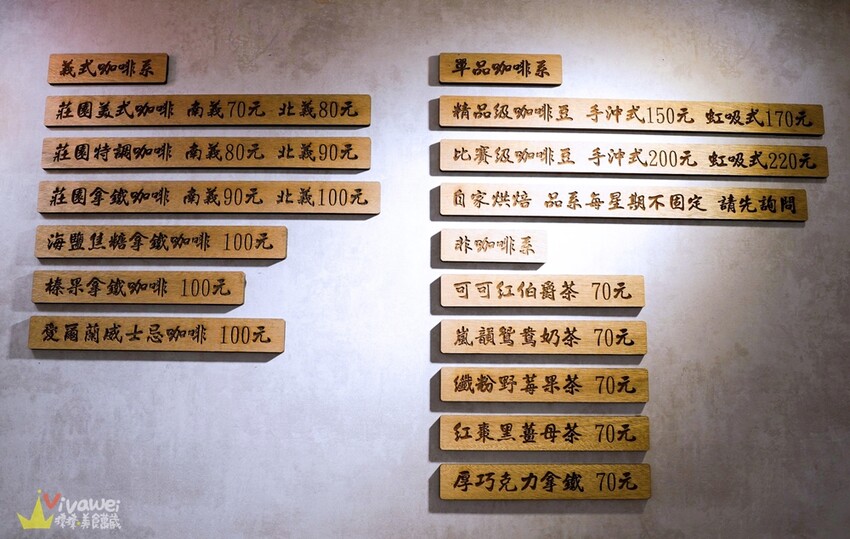 義式咖啡系
莊園美式咖啡 南義70元 北義80元
莊園特調咖啡 南義80元 北義90元
莊園拿鐵咖啡 南義90元 北義100元
海鹽焦糖拿鐵咖啡 100元
榛果拿鐵咖啡 100元
愛爾蘭威士忌咖啡 100元
單品咖啡系
精品級咖啡豆 手沖式150元 虹吸式170元
比賽級咖啡豆 手沖式200元 虹吸式220元
自家烘焙 品系每星期不固定 請先詢問
非咖啡系
可可紅伯爵茶 70元
嵐韻鴛鴦奶茶 70元
纖粉野莓果茶 70元
紅棗黑薑母茶 70元
厚巧克力拿鐵 70元
Vivawei